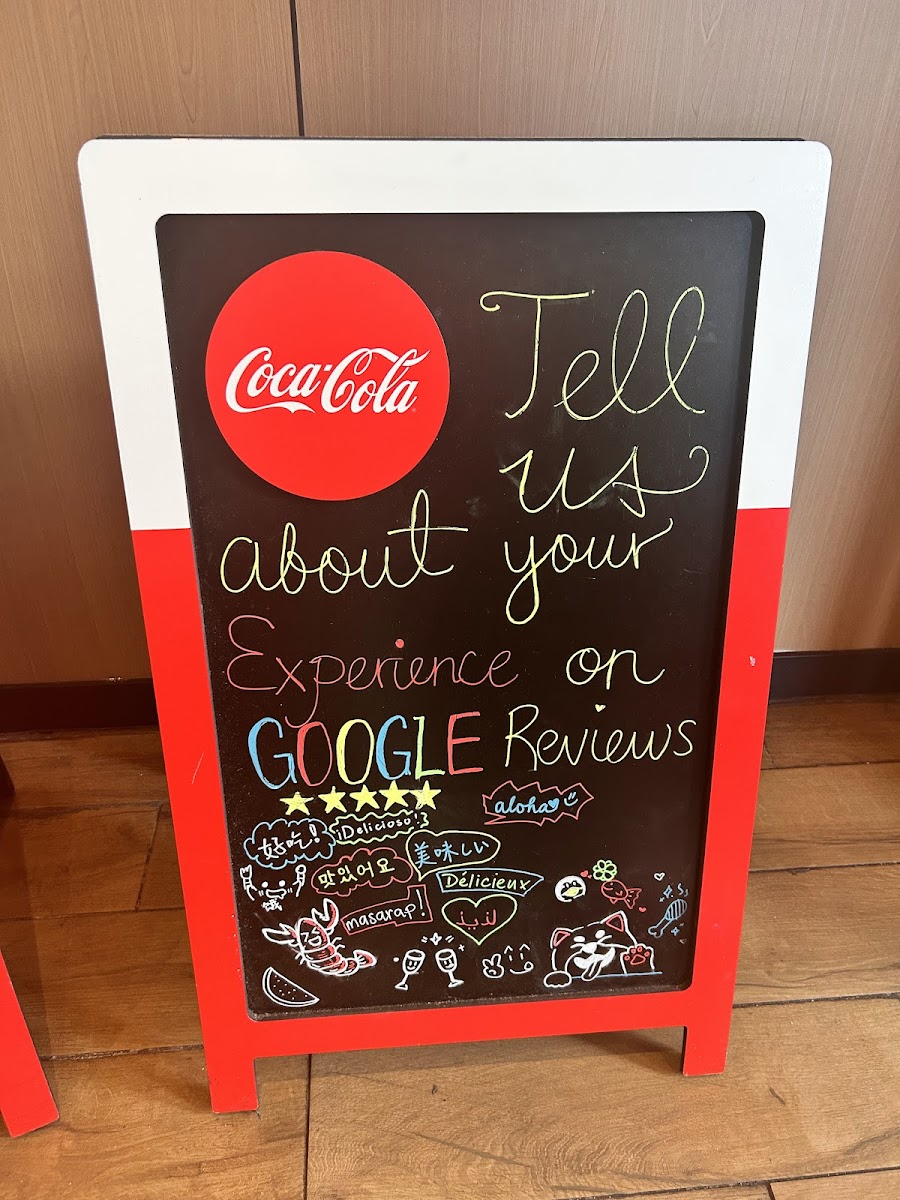 Coca-Cola
Tell
us
about your
Experience on
GOOGLE Reviews
aloha
好吃!
¡Delicioso!
美味しい
맛있어요
Délicieux
masarap!
لذيذ